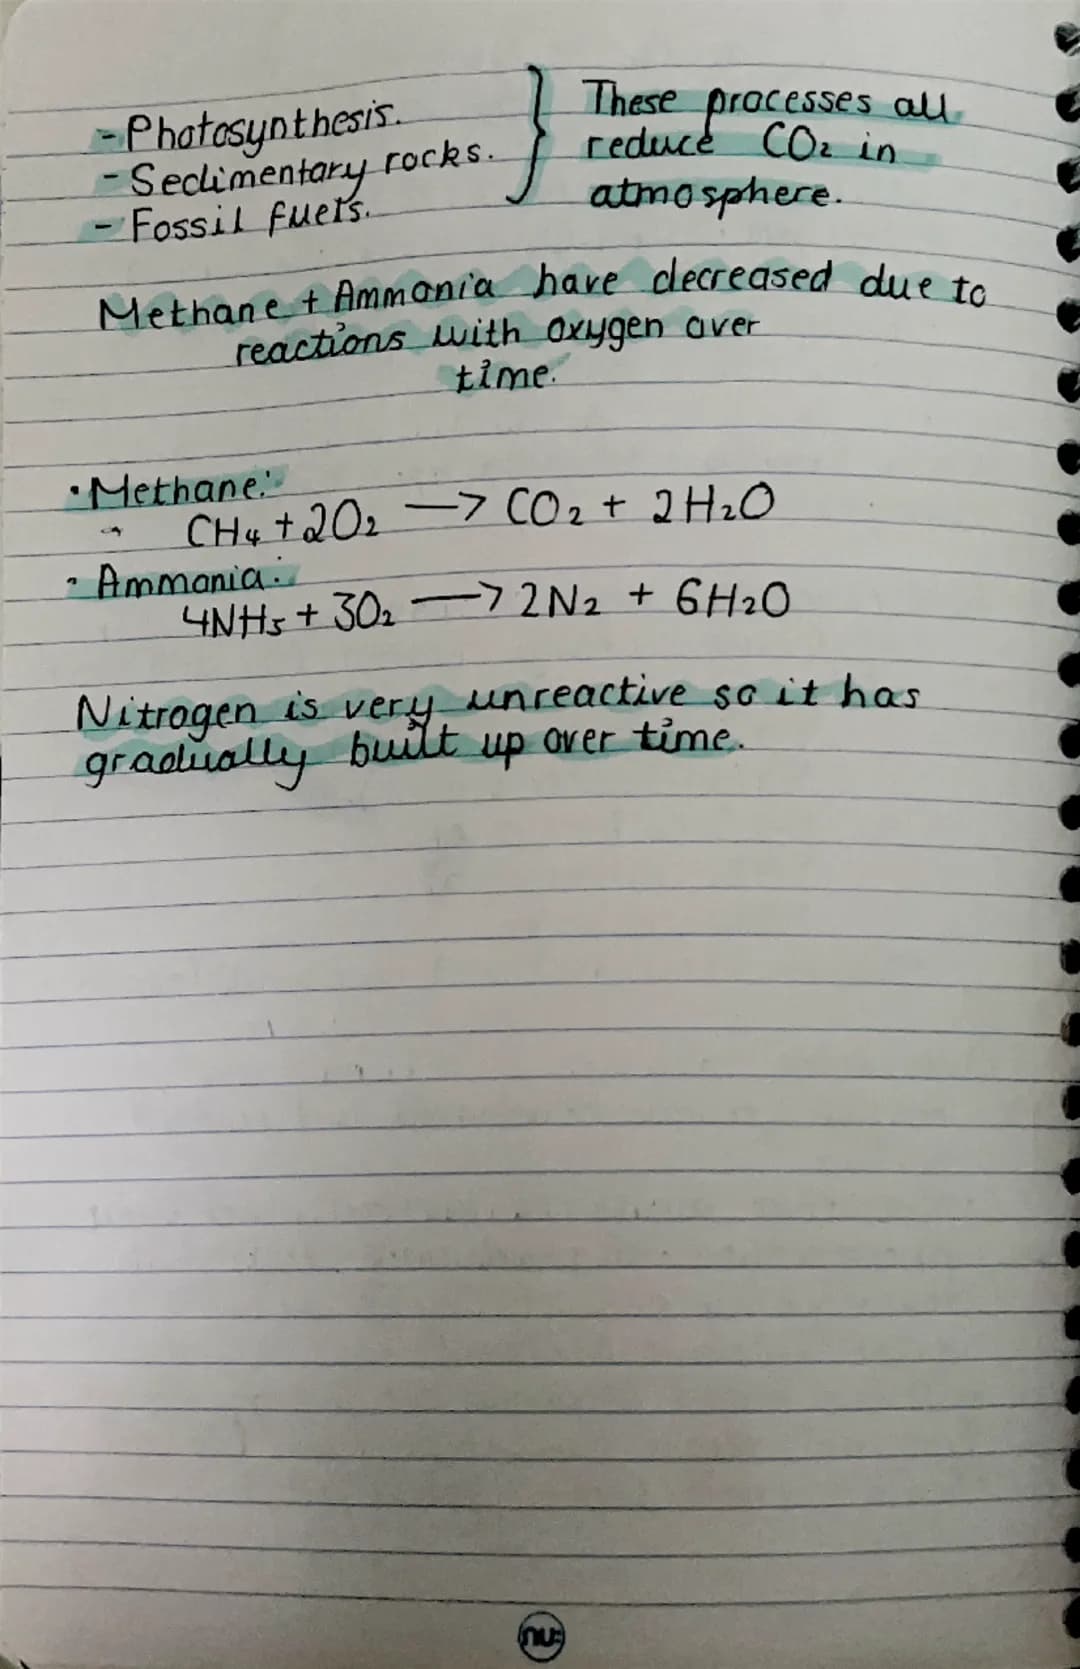 - Photosynthesis.
- Sedimentary rocks.
- Fossil fuels.
These processes all
reduce CO₂ in
atmosphere.
Methane + Ammonia have decreased due to
reactions with oxygen over
time.
• Methane:
CH₄ + 2O₂ → CO₂ + 2H₂O
• Ammonia:
4NH₃ + 3O₂ → 2N₂ + 6H₂O
Nitrogen is very unreactive so it has
gradually built up over time.
nu: